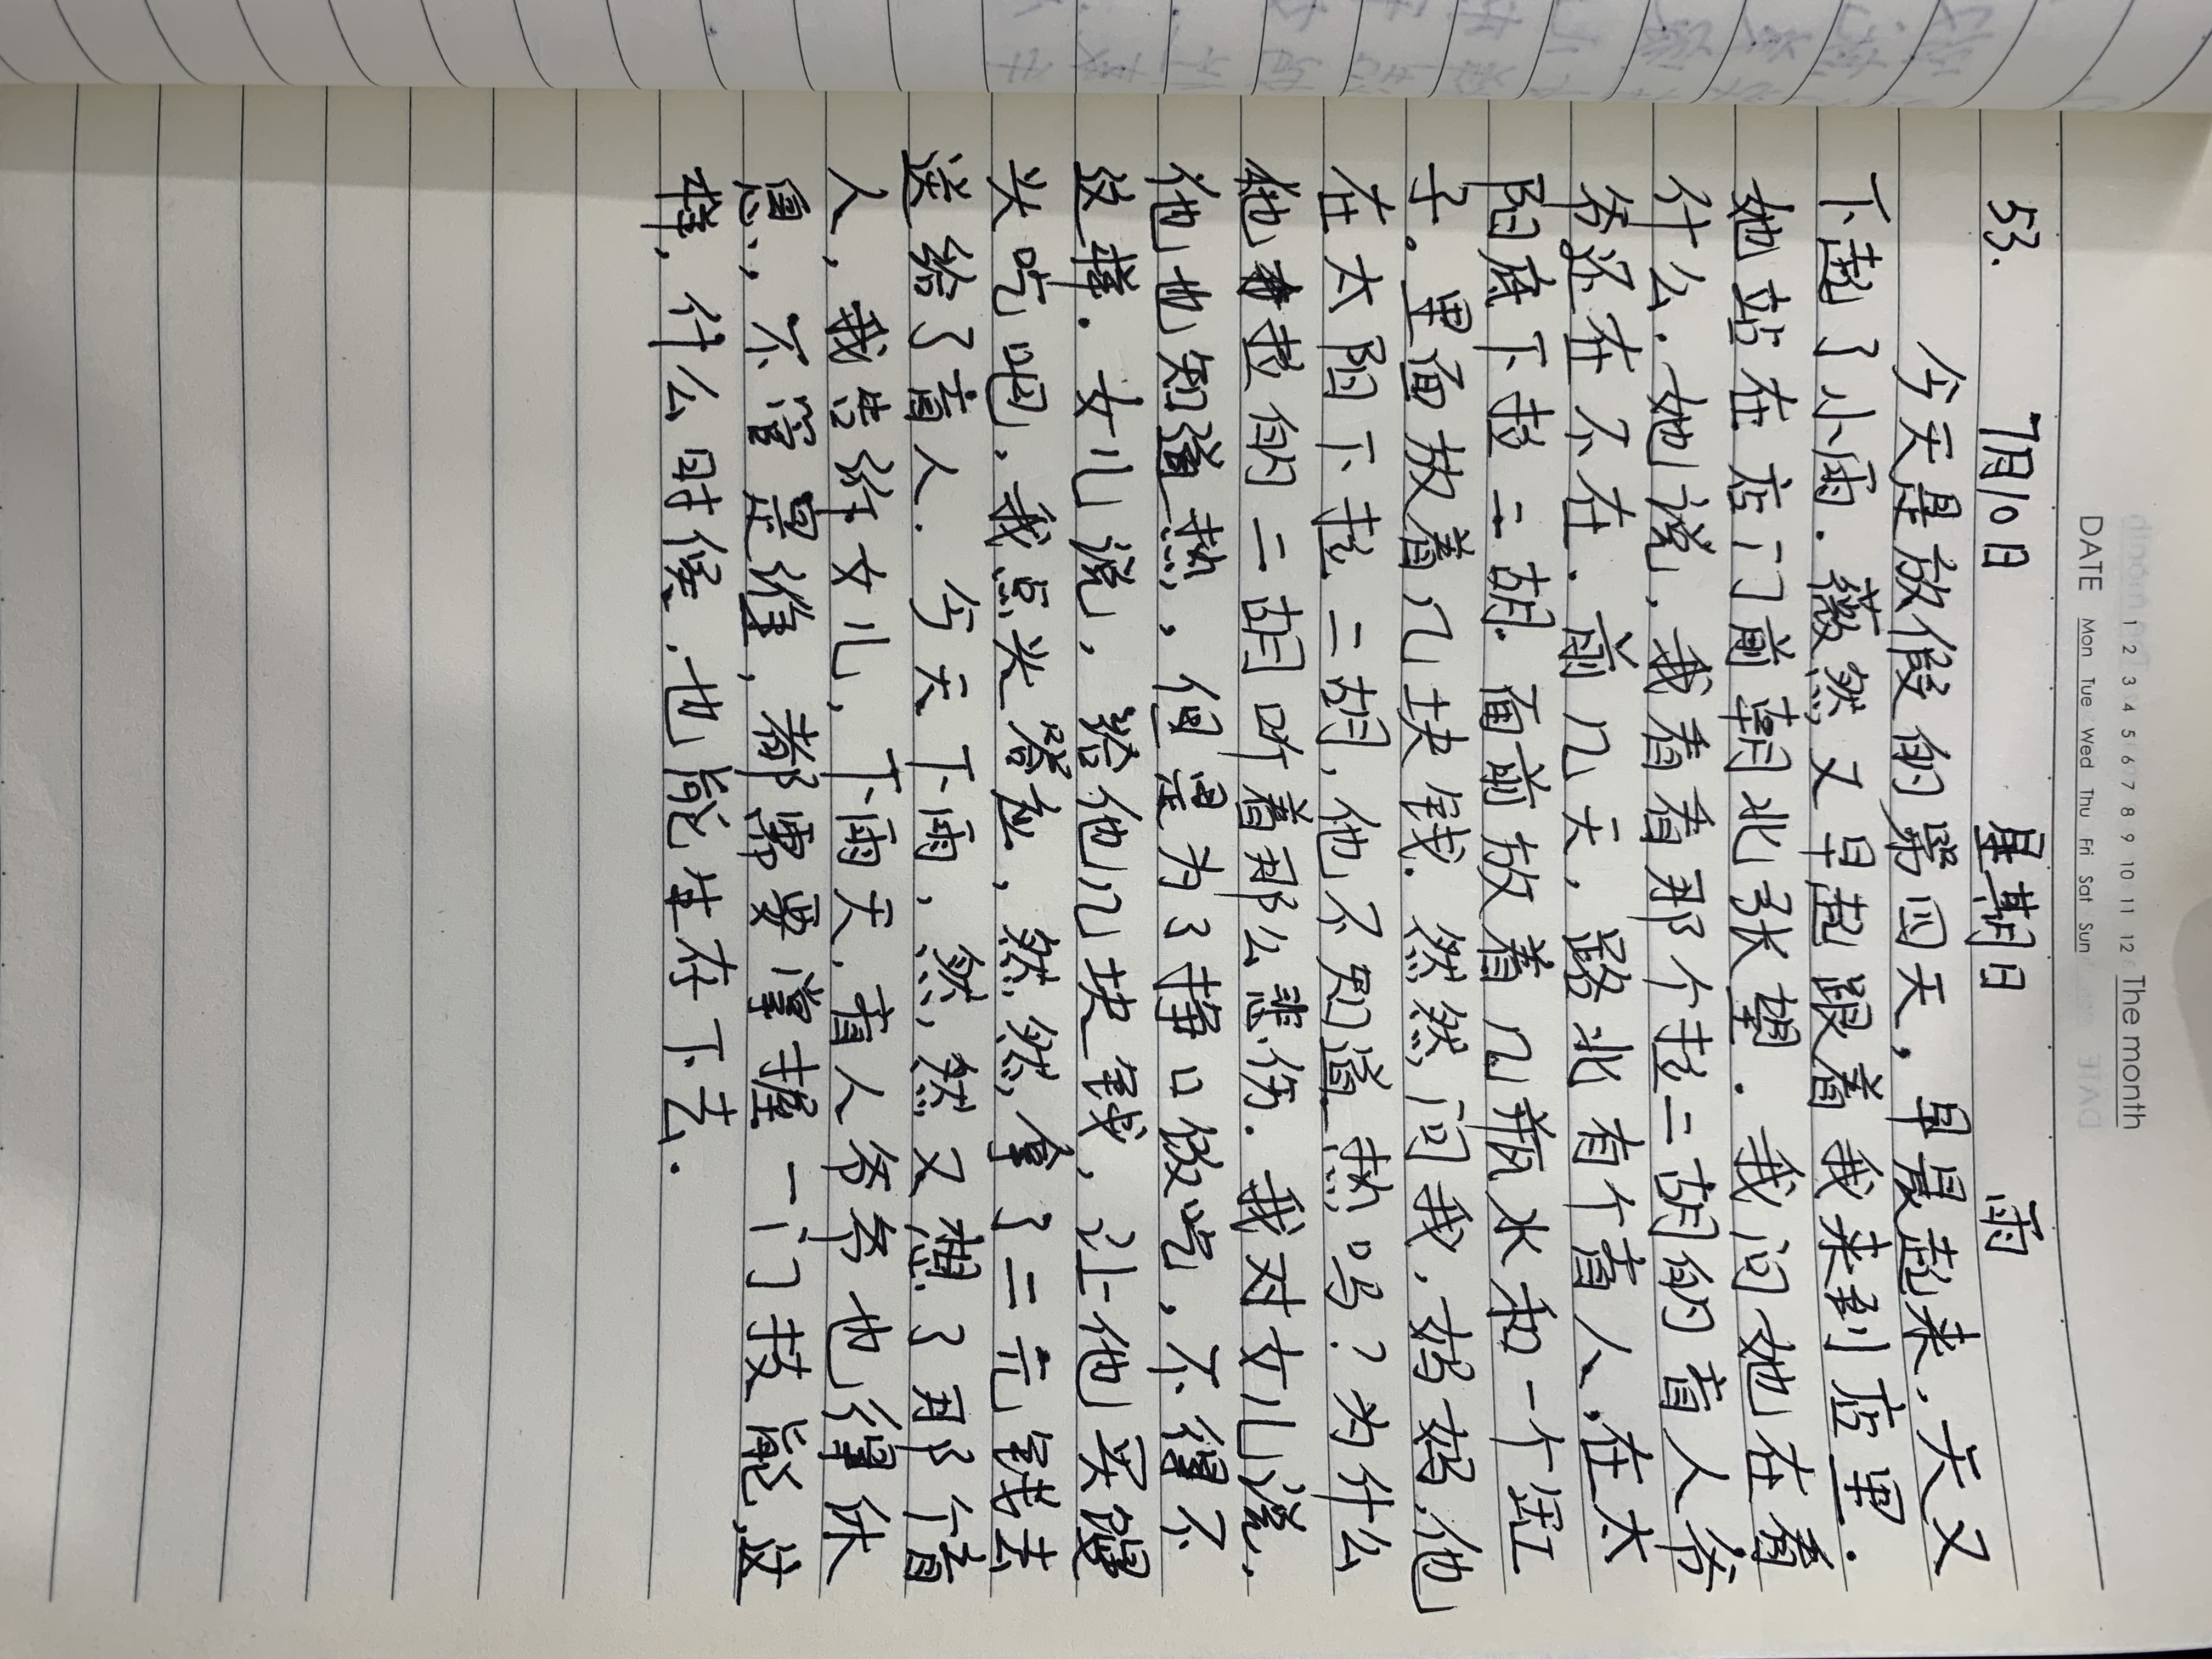 The month 1 2 3 4 5 6 7 8 9 10 11 12
DATE Mon Tue Wed Thu Fri Sat Sun
53. 7月10日 星期日 雨
今天是放假的第四天,早晨起来.天又
下起了小雨.薇然又早起跟着我来到店里.
她站在店门前朝北张望.我问她在看
什么.她说,我看看那个拉二胡的盲人爷
爷还在不在.前几天,路北有个盲人,在太
阳底下拉二胡.面前放着几瓶水和一个缸
子.里面放着几块钱.然然问我.妈妈.他
在太阳下拉二胡,他不知道热吗?为什么
他拉的二胡听着那么悲伤.我对女儿说.
他也知道热,但是为了挣口饭吃,不得不
这样.女儿说,给他几块钱,让他买馒
头吃吧.我点头答应,然然拿了二元钱去
送给了盲人.今天下雨,然然又想了那个盲
人,我告诉女儿,下雨天.盲人爷爷也得休
息,不管是谁,都需要掌握一门技能,这
样,什么时候.也能生存下去.